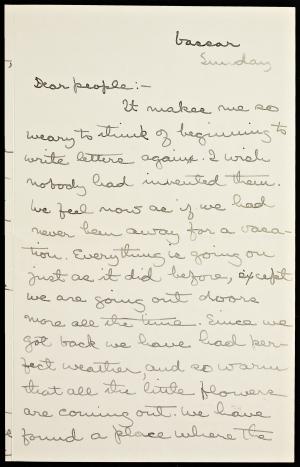 Vassar
Sunday
Dear people:-
It makes me so
weary to think of beginning to
write letters again. I wish
nobody had invented them.
We feel now as if we had
never been away for a vaca-
tion. Everything is going on
just as it did before, except
we are going out doors
more all the time. Since we
got back we have had per-
fect weather, and so warm
that all the little flowers
are coming out. We have
found a place where the